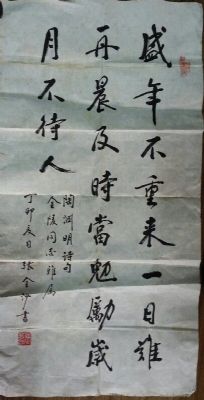 盛年不重来一日難
再晨及时當勉勵歲
月不待人
陶淵明詩句
金陵同志雅属
丁卯夏日張金沙書